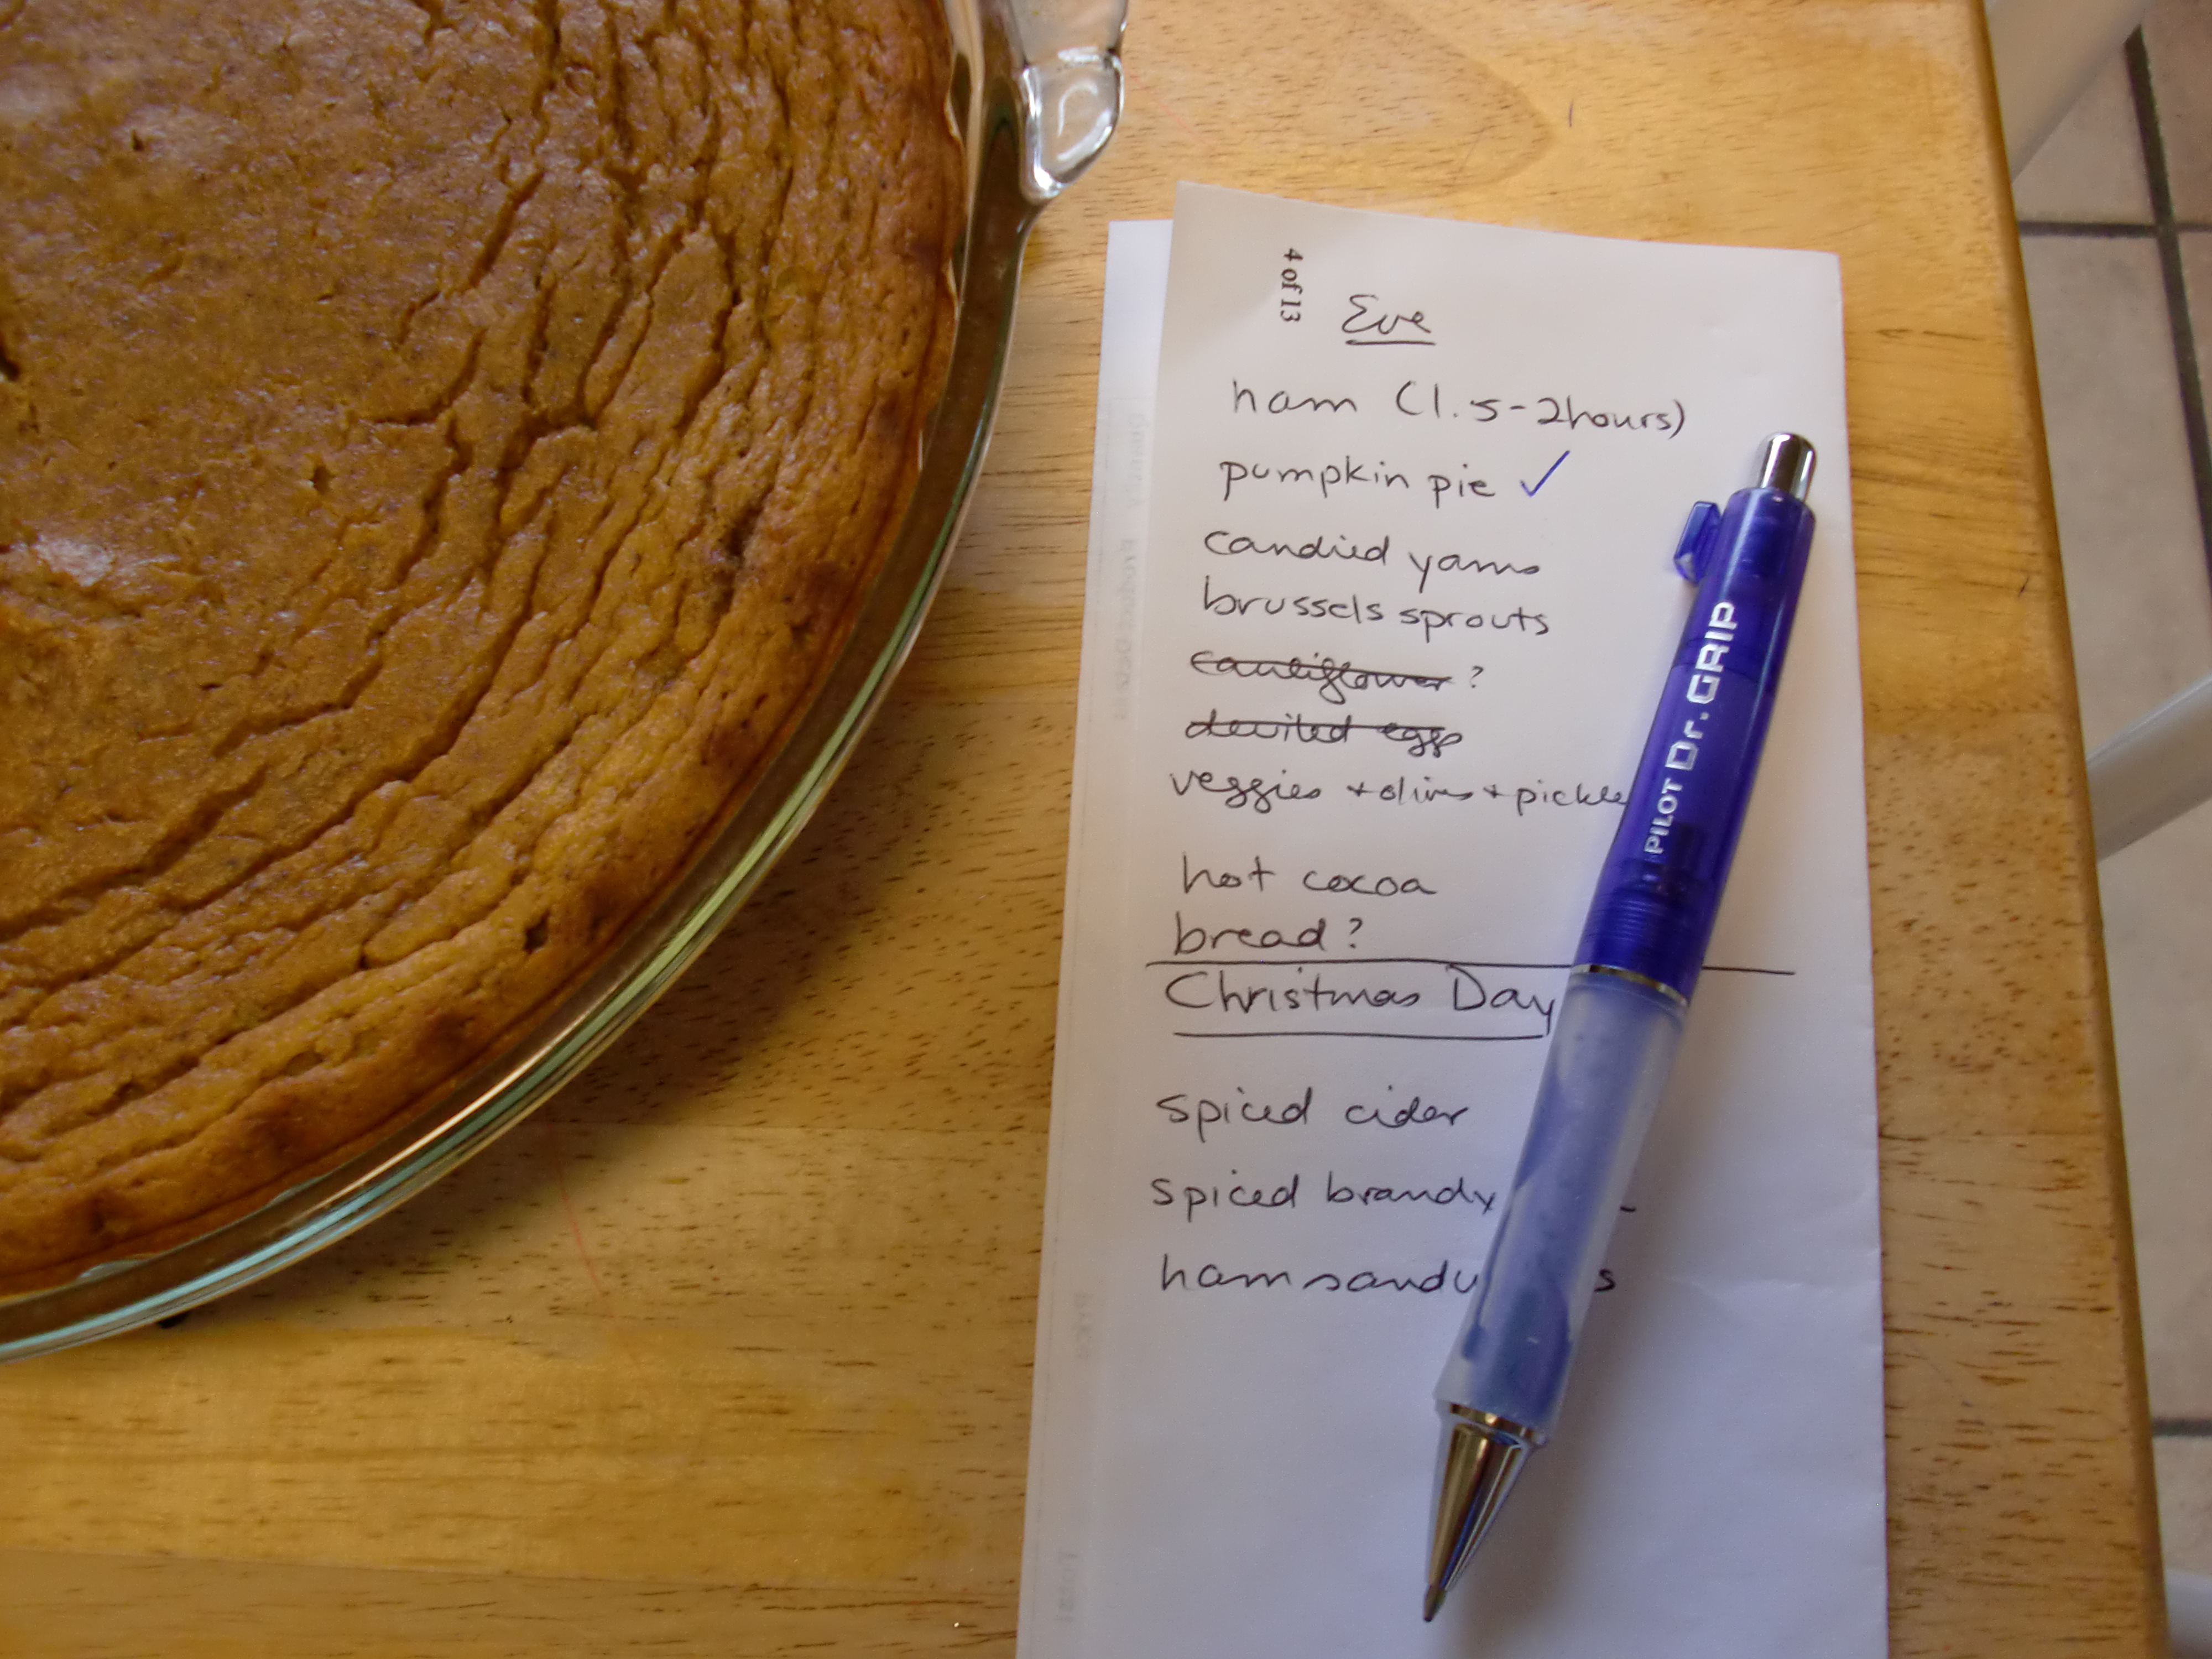 4 of 13
Eve
ham (1.5-2hours)
pumpkin pie ✓
candied yams
brussels sprouts
cauliflower ?
deviled eggs
veggies + olives + pickle
hot cocoa
bread?
Christmas Day
spiced cider
spiced brandy
ham
PILOT Dr. GRIP